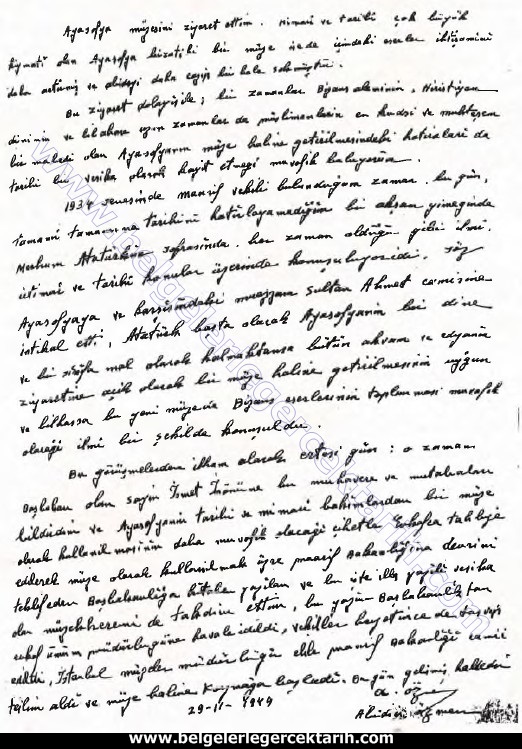 Ayasofya müzesini ziyaret ettim. Mimari ve tarihi çok büyük
kıymeti olan Ayasofya bizatihi bir müze ise de içindeki eserler ihtişamını
daha artırmış ve abideyi daha eşsiz bir hale sokmuştur.
Bu ziyaret dolayısile; bir zamanlar Bizans aleminin, Hiristiyan
dininin ve bilahare uzun zamanlar da müslimanların en kudsi ve muhteşem
bir mabedi olan Ayasofyanın müze haline getirilmesindeki hatıraları da
tarihi bir vesika olarak kayit etmeği muvafık buluyorum.
1934 senesinde maarif vekili bulunduğum zaman, bu gün,
tamamı tamamına tarihini hatırlayamadığım bir akşam yemeğinde
Merhum Atatürkün sofrasında, her zaman olduğu gibi ilmi,
içtimai ve tarihi konular üzerinde konuşuluyordu. Söz
Ayasofyaya ve karşısındaki muazzam Sultan Ahmet camisine
intikal etti, Atatürk başta olarak Ayasofyanın bir dine
ve bir sınıfa mal olarak kalmaktansa bütün akvam ve edyanın
ziyaretine açık olarak bir müze haline getirilmesinin uygun
ve bilhassa bu yeni müzede Bizans eserlerinin toplanması muvafık
olacağı ilmi bir şekilde konuşuldu.
Bu görüşmelerden ilham alarak ertesi gün: o zaman
Başbakan olan sayın İsmet İnönüne bu muhavere ve mutaleaları
bildirdim ve Ayasofyanın tarihi ve mimari bakımlardan bir müze
olarak kullanılmasının daha muvafık olacağı cihetle Evkafca tahliye
edilerek müze olarak kullanılmak üzre maarif Bakanlığına devrini
teklif eden Başbakanlığa hitaben yazılan ve bu işte ilk yazılı vesika
olan müzekkeremi de takdim ettim, bu yazım Başbakanlıktan
evkaf umum müdürlüğüne havale edildi, vekiller heyetince de tasvip
edildi, İstanbul müzeler müdürlüğü eliyle maarif Bakanlığı camii
teslim aldı ve müze haline koymağa başladı. Bu gün gelmiş
29-11-1949
Abidin Özmen
www.belgelerlegercektarih.com
www.belgelerlegercektarih.com